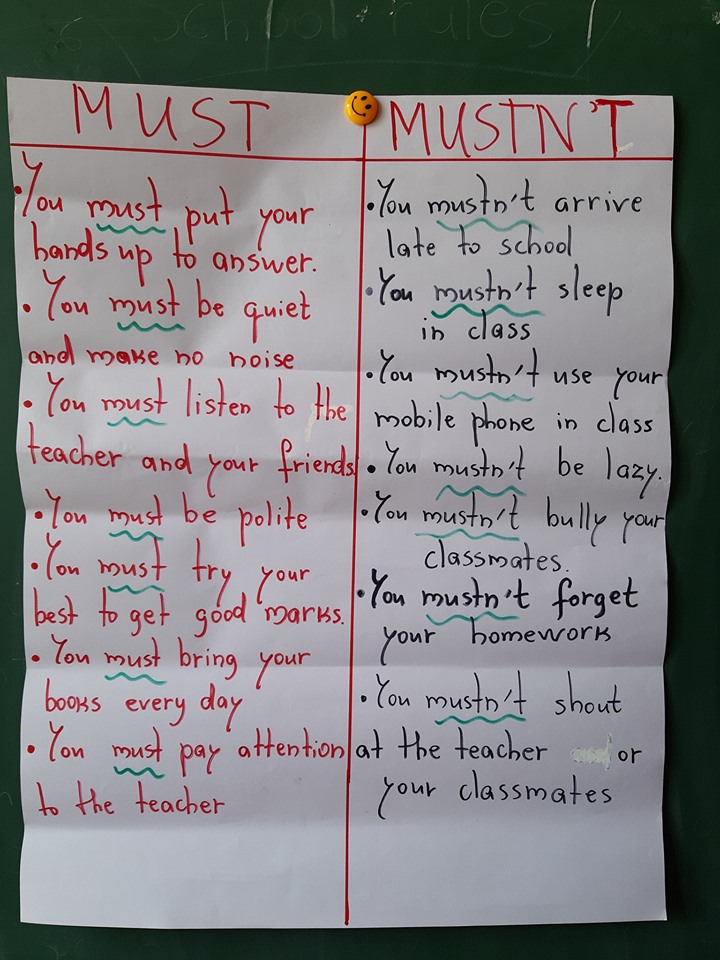 school rules
MUST
• You must put your
hands up to answer.
• You must be quiet
and make no noise
• You must listen to the
teacher and your friends
• You must be polite
• You must try your
best to get good marks.
• You must bring your
books every day
• You must pay attention
to the teacher
MUSTN'T
• You mustn't arrive
late to school
• You mustn't sleep
in class
• You mustn't use your
mobile phone in class
• You mustn't be lazy.
• You mustn't bully your
classmates.
• You mustn't forget
your homework
• You mustn't shout
at the teacher or
your classmates